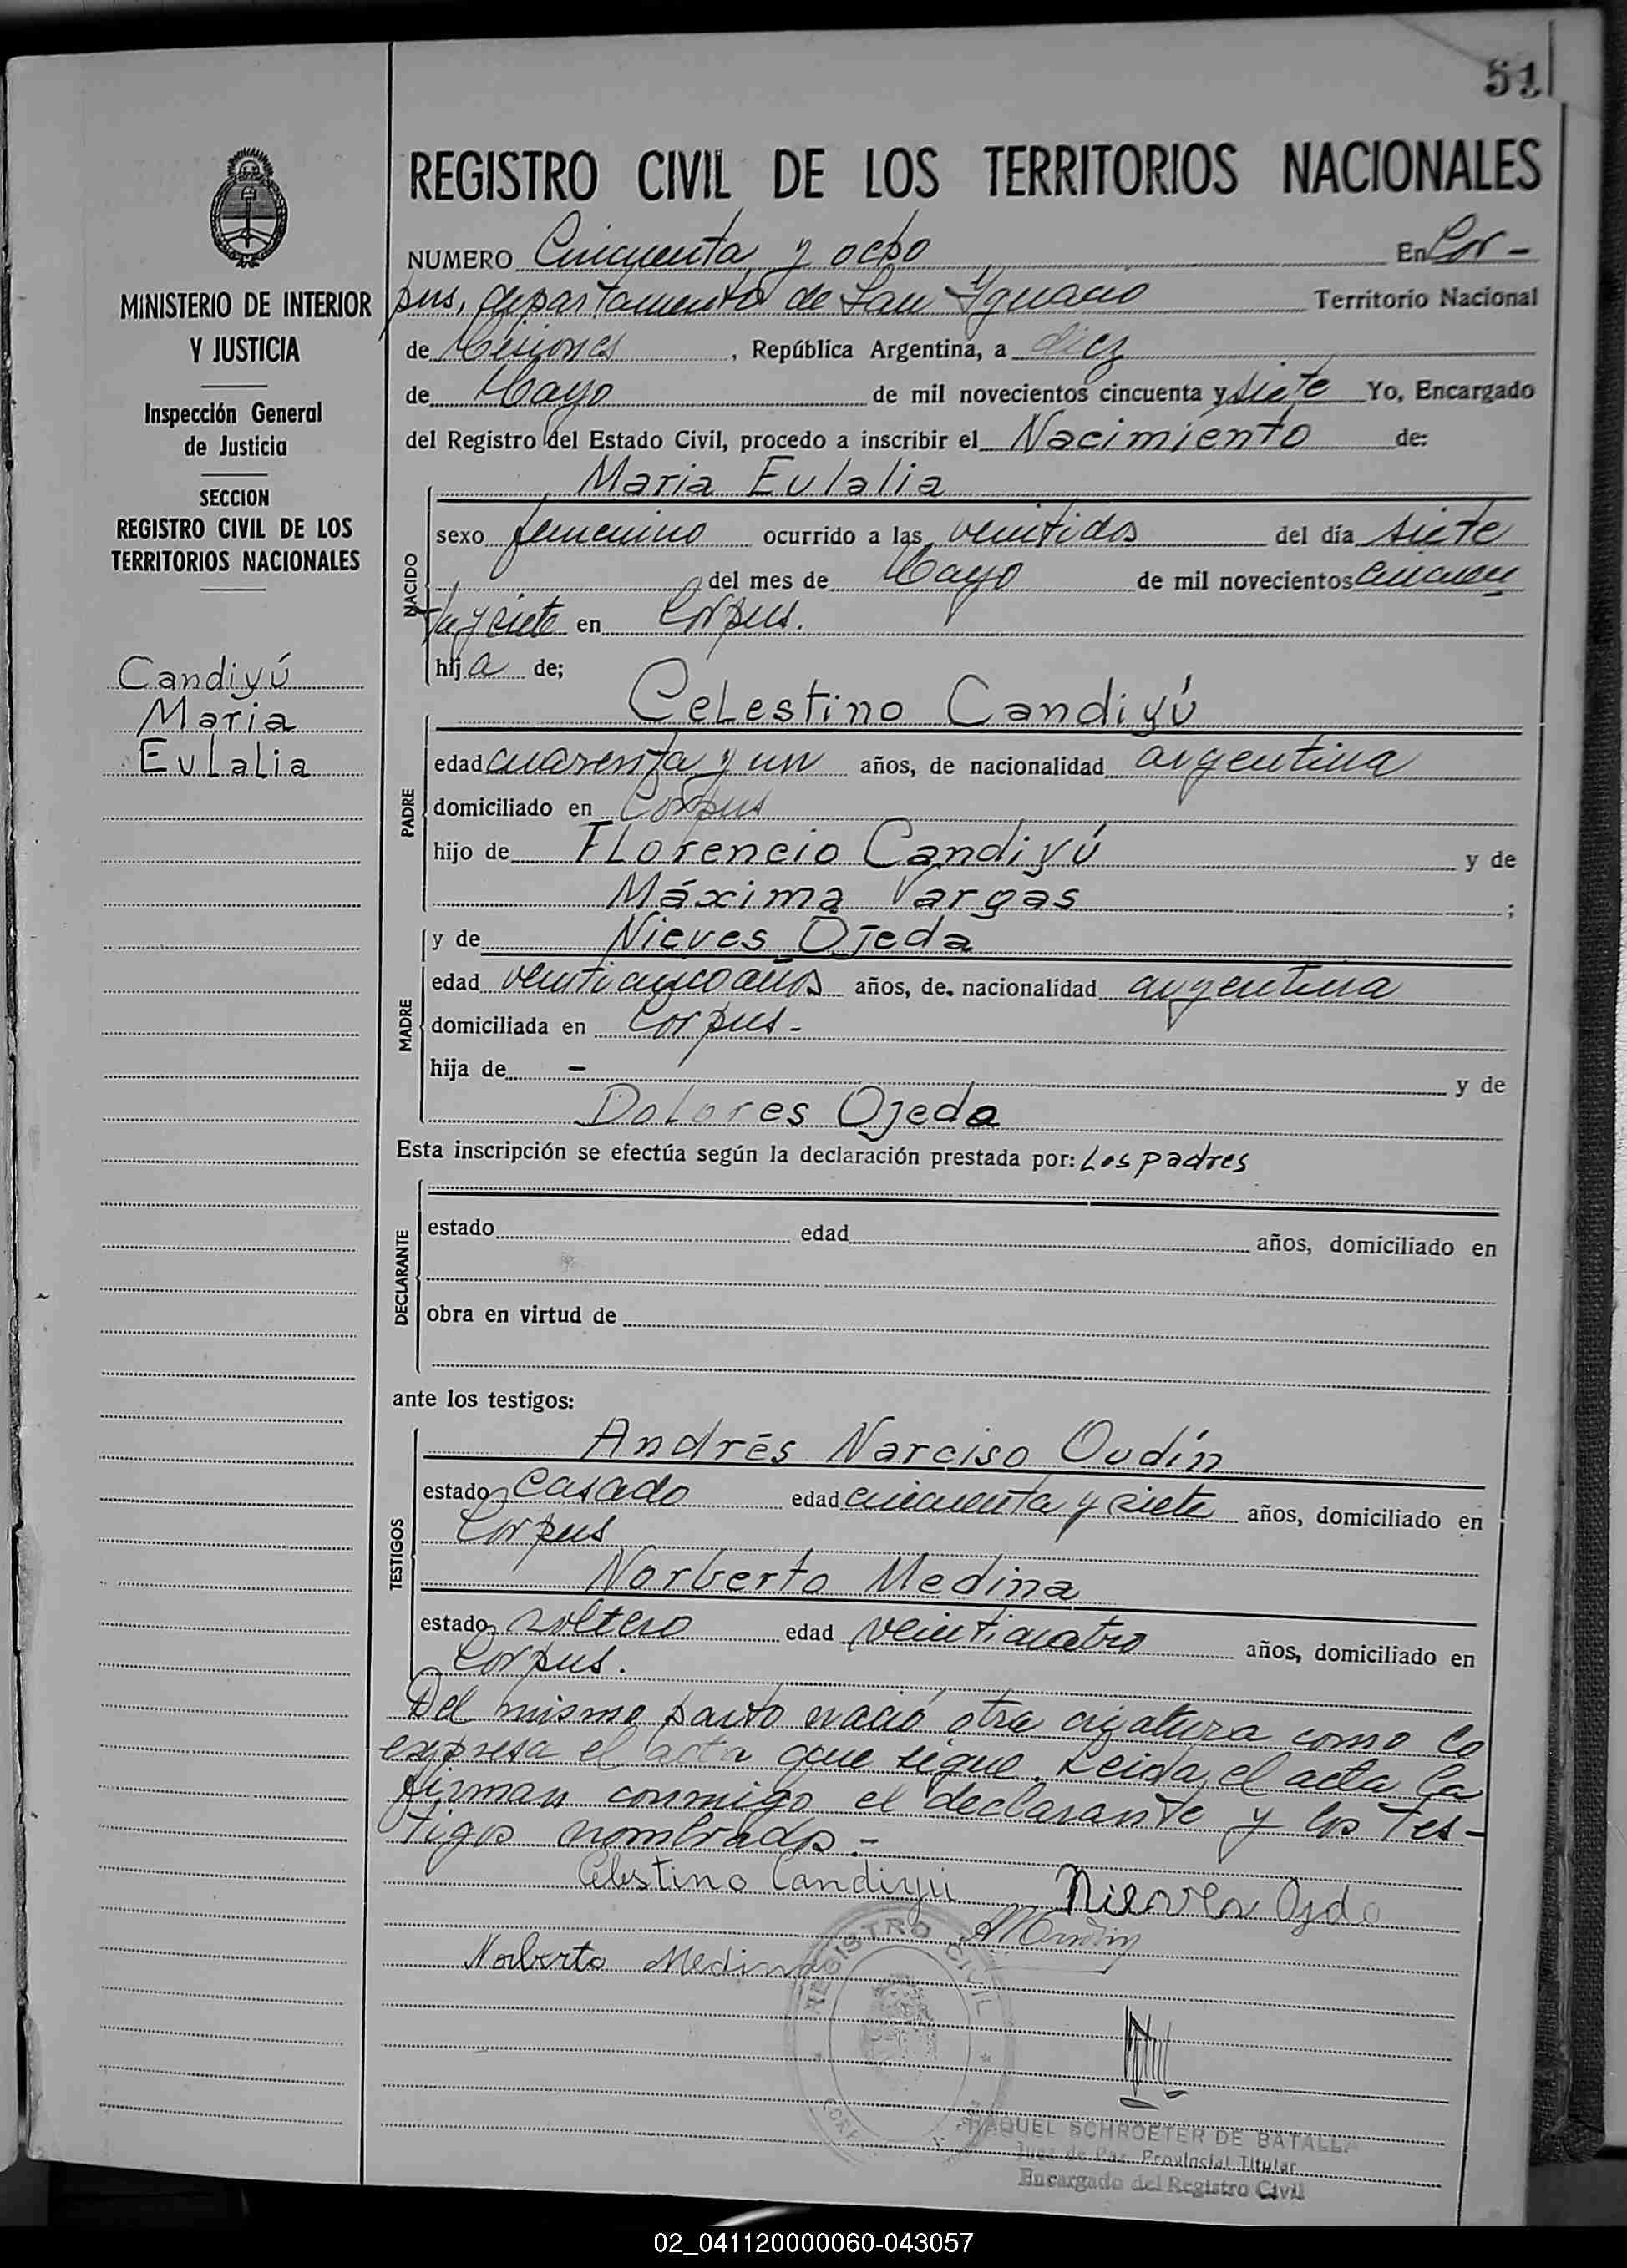 51
REGISTRO CIVIL DE LOS TERRITORIOS NACIONALES
MINISTERIO DE INTERIOR
Y JUSTICIA
Inspección General
de Justicia
SECCION
REGISTRO CIVIL DE LOS
TERRITORIOS NACIONALES
Candiyú
Maria
Eulalia
NUMERO Cincuenta y ocho En Cor-
pus, departamento de San Ygnacio Territorio Nacional
de Misiones, República Argentina, a diez
de Mayo de mil novecientos cincuenta y siete Yo, Encargado
del Registro del Estado Civil, procedo a inscribir el Nacimiento de:
Maria Eulalia
NACIDO
sexo femenino ocurrido a las veintidos del día siete
del mes de Mayo de mil novecientos cincuen
ta y siete en Corpus.
hija de;
Celestino Candiyú
PADRE
edad cuarenta y un años, de nacionalidad argentina
domiciliado en Corpus
hijo de Florencio Candiyú y de
Máxima Vargas ;
y de Nieves Ojeda
MADRE
edad veinticinco años años, de nacionalidad argentina
domiciliada en Corpus-
hija de - y de
Dolores Ojeda
Esta inscripción se efectúa según la declaración prestada por: Los padres
DECLARANTE
estado edad años, domiciliado en
obra en virtud de
ante los testigos:
Andrés Narciso Oudín
TESTIGOS
estado Casado edad cincuenta y siete años, domiciliado en
Corpus
Norberto Medina
estado soltero edad veinticuatro años, domiciliado en
Corpus.
Del mismo parto nació otra criatura como lo
expresa el acta que sigue. Leida, el acta la
firman conmigo el declarante y los tes-
tigos nombrados.-
Celestino Candiyú Nieves Ojeda
Norberto Medina
REGISTRO CIVIL
RAQUEL SCHROETER DE BATALLA
Juez de Paz Provincial Titular
Encargado del Registro Civil
02_041120000060-043057